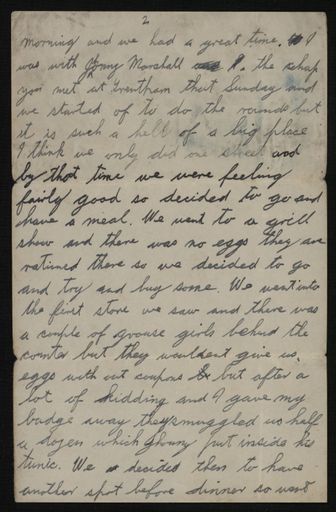 2
morning and we had a great time. I
was with Johnny Marshall the chap
you met at Trentham that Sunday and
we started of to do the rounds but
it is such a hell of a big place
I think we only did one street and
by that time we were feeling
fairly good so decided to go and
have a meal. We went to a grill
show and there was no eggs they are
rationed there so we decided to go
and toy and buy some. We went into
the first store we saw and there was
a couple of grouse girls behind the
counter but they wouldent give us.
eggs with out coupons but after a
lot of kidding and I gave my
badge away they smuggled us half
a dozen which Johnny put inside his
tunic. We decided then to have
another spot before dinner so went